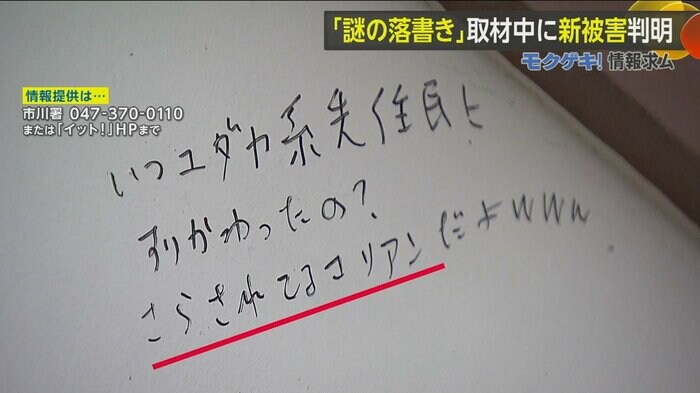 「謎の落書き」取材中に新被害判明
モクゲキ!情報求ム
情報提供は…
市川署 047-370-0110
または「イット!」HPまで
いつユダカ系先住民と
すりかわったの?
こらされてるコリアンだよwww